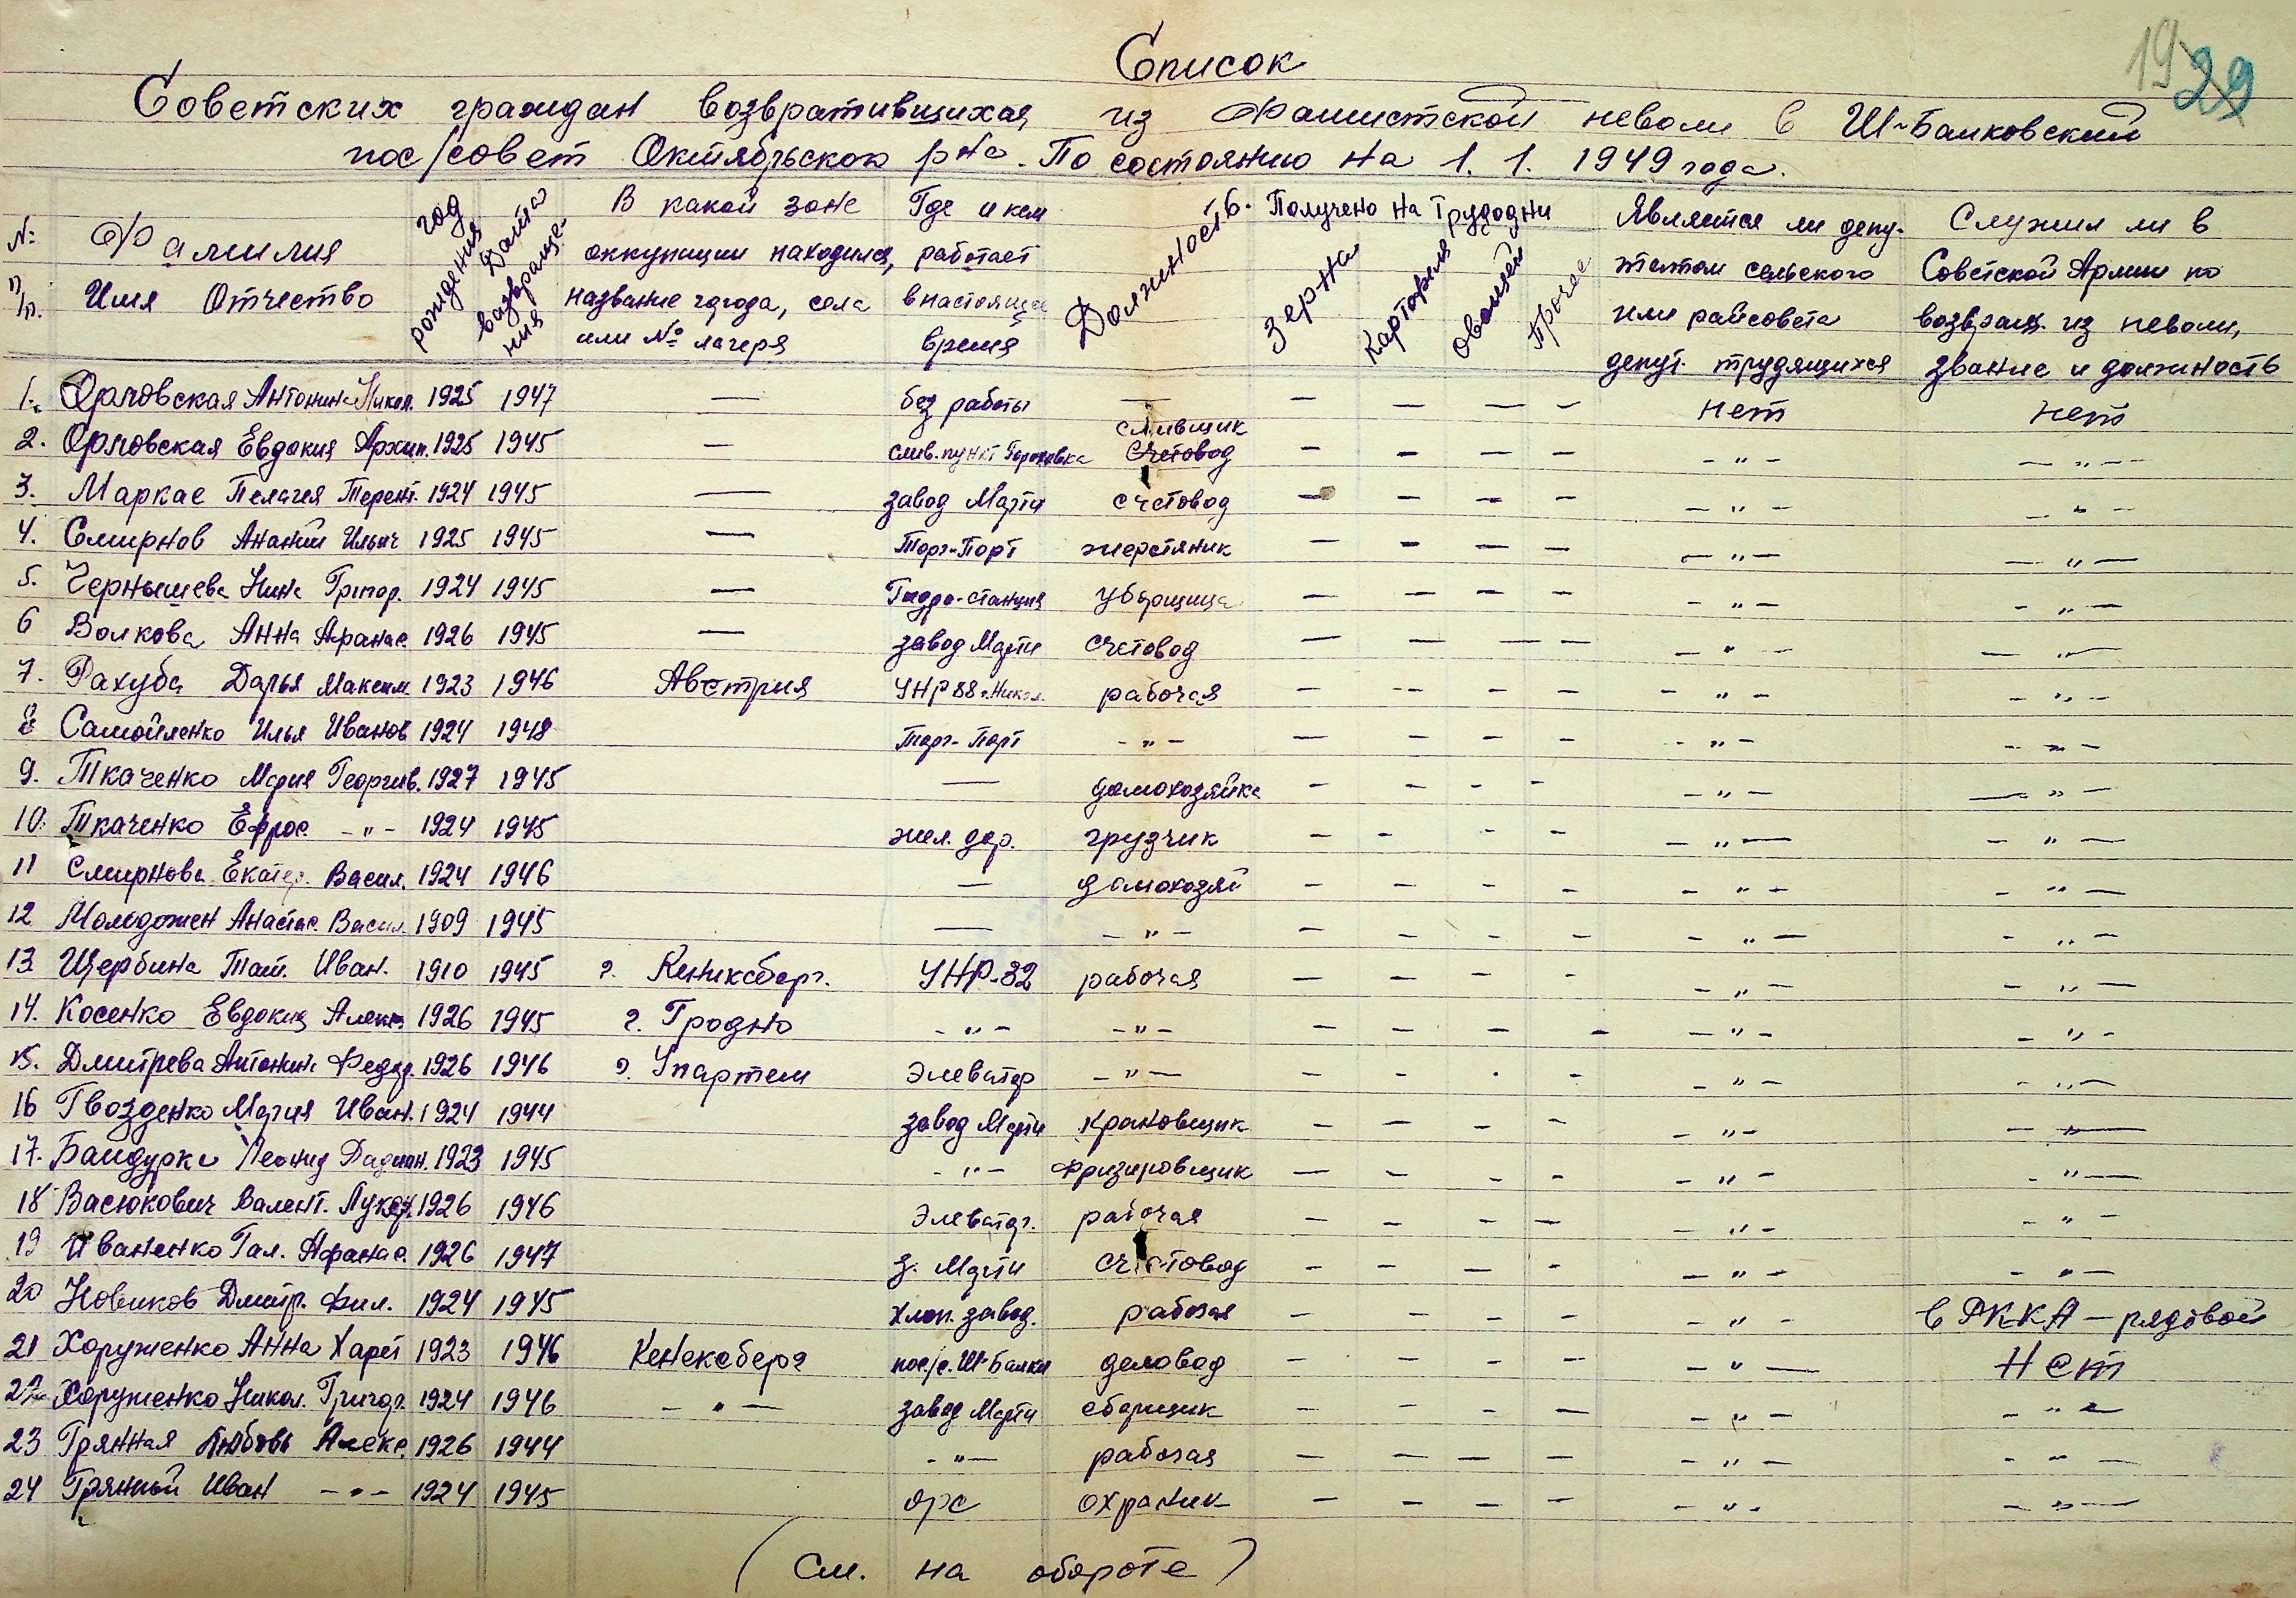 19 29
Список
Советских граждан возвратившихся из Фашистской неволи в Ш-Балковский
пос/совет Октябрьского р-на. По состоянию на 1. 1. 1949 года.
№ п/п. Фамилия Имя Отчество год рождения Дата возвращения В какой зоне оккупации находился, название города, села или № лагеря Где и кем работает в настоящее время Должность 6. Получено на трудодни Зерна Картофеля овощей Прочее Является ли депутатом сельского или райсовета депут. трудящихся Служил ли в Советской Армии по возвращ. из неволи, звание и должность
1. Орловская Антонина Никол. 1925 1947 — без работы — — — — — нет нет
2. Орловская Евдокия Архип. 1925 1945 — слив. пункт Гороховка сливщик счетовод — — — — -"- -"-
3. Маркас Пелагея Терент. 1924 1945 — завод Марти счетовод — — — — -"- -"-
4. Смирнов Ананий Ильич 1925 1945 — Торг-Порт жерстяник — — — — -"- -"-
5. Чернышева Нина Григор. 1924 1945 — Гидро-станция уборщица — — — — -"- -"-
6 Волкова Анна Афанас. 1926 1945 — завод Марти счетовод — — — — -"- -"-
7. Рахуба Дарья Максим. 1923 1946 Австрия УНР 88 г. Никол. рабочая — — — — -"- -"-
8 Самойленко Илья Иванов 1924 1948 Торг-Порт -"- — — — — -"- -"-
9. Ткаченко Мария Георгив. 1927 1945 — домохозяйка — — — — -"- -"-
10. Ткаченко Ефрос. -"- 1924 1945 жел. дор. грузчик — — — — -"- -"-
11 Смирнова Екатер. Васил. 1924 1946 — домохозяй — — — — -"- -"-
12 Молодожен Анастас. Васил. 1909 1945 — -"- — — — — -"- -"-
13 Щербина Тат. Иван. 1910 1945 г. Кениксберг. УНР-32 рабочая — — — — -"- -"-
14. Косенко Евдокия Алекс 1926 1945 г. Гродно -"- -"- — — — — -"- -"-
15. Дмитрева Антонина Федор. 1926 1946 г. Упартем Элеватор -"- — — — — -"- -"-
16 Гвозденко Мария Иван. 1924 1944 завод Марти крановщик — — — — -"- -"-
17. Бандурка Леонид 1923 1945 -"- Фризировщик — — — — -"- -"-
18 Васюкович Валент. 1926 1946 Элеватор. рабочая — — — — -"- -"-
19 Иваненко Гал. Афанас. 1926 1947 з. Марти счетовод — — — — -"- -"-
20 Новиков Дмитр. Фил. 1924 1945 хлоп. завод. рабочая — — — — -"- в РККА — рядовой
21 Хоруженко Анна Харет 1923 1946 Кенексберг пос/с. Ш-Балки деловод — — — — -"- Нет
22 Хоруженко Никол. Григор. 1924 1946 -"- завод Марти сборщик — — — — -"- -"-
23 Грянная Любовь Алекс. 1926 1944 -"- рабочая — — — — -"- -"-
24 Грянный Иван -"- 1924 1945 орс охраник — — — — -"- -"-
(См. на обороте)